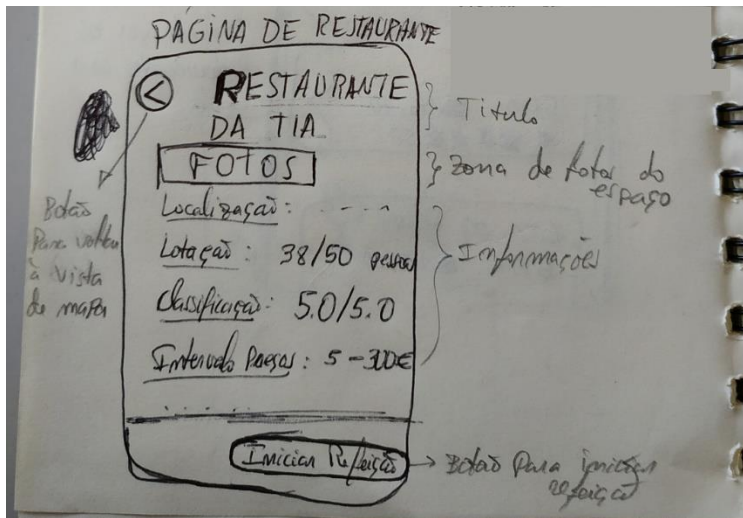 PÁGINA DE RESTAURANTE
<
RESTAURANTE
DA TIA
FOTOS
Localização: - - - -
Lotação: 38/50 pessoas
Classificação: 5.0/5.0
Intervalo Preços: 5-300€
Iniciar Refeição
Titulo
Zona de fotos do
espaço
Informações
Botão para iniciar
refeição
Botão
Para voltar
à vista
de mapa